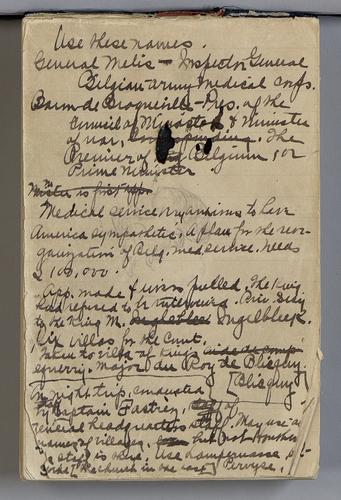 Use these names.
General Melis – Inspector General
Belgian army medical corps.
Baron de Broqueville – Pres. of the
Council of Ministers & minister
of war, The
Premier of Belgium, or
Prime Minister
Medical service anxious to have
America sympathetic. A plan for the reor-
ganization of Belg. med. service. Needs
$100,000.
App. made & wires pulled. The King
had refused to be interviewed. Priv. Secy
to the King M. Ingelbleek.
Six villas for the Court.
Taken to villa of King's
equerry. Major du Roy de Blicquy.
[Blicquy]
In night trip, conducted
by Captain Fastrez,
general headquarters staff. May use
names of villages, but not Houthem
as staff is there. Use
Pervyse.